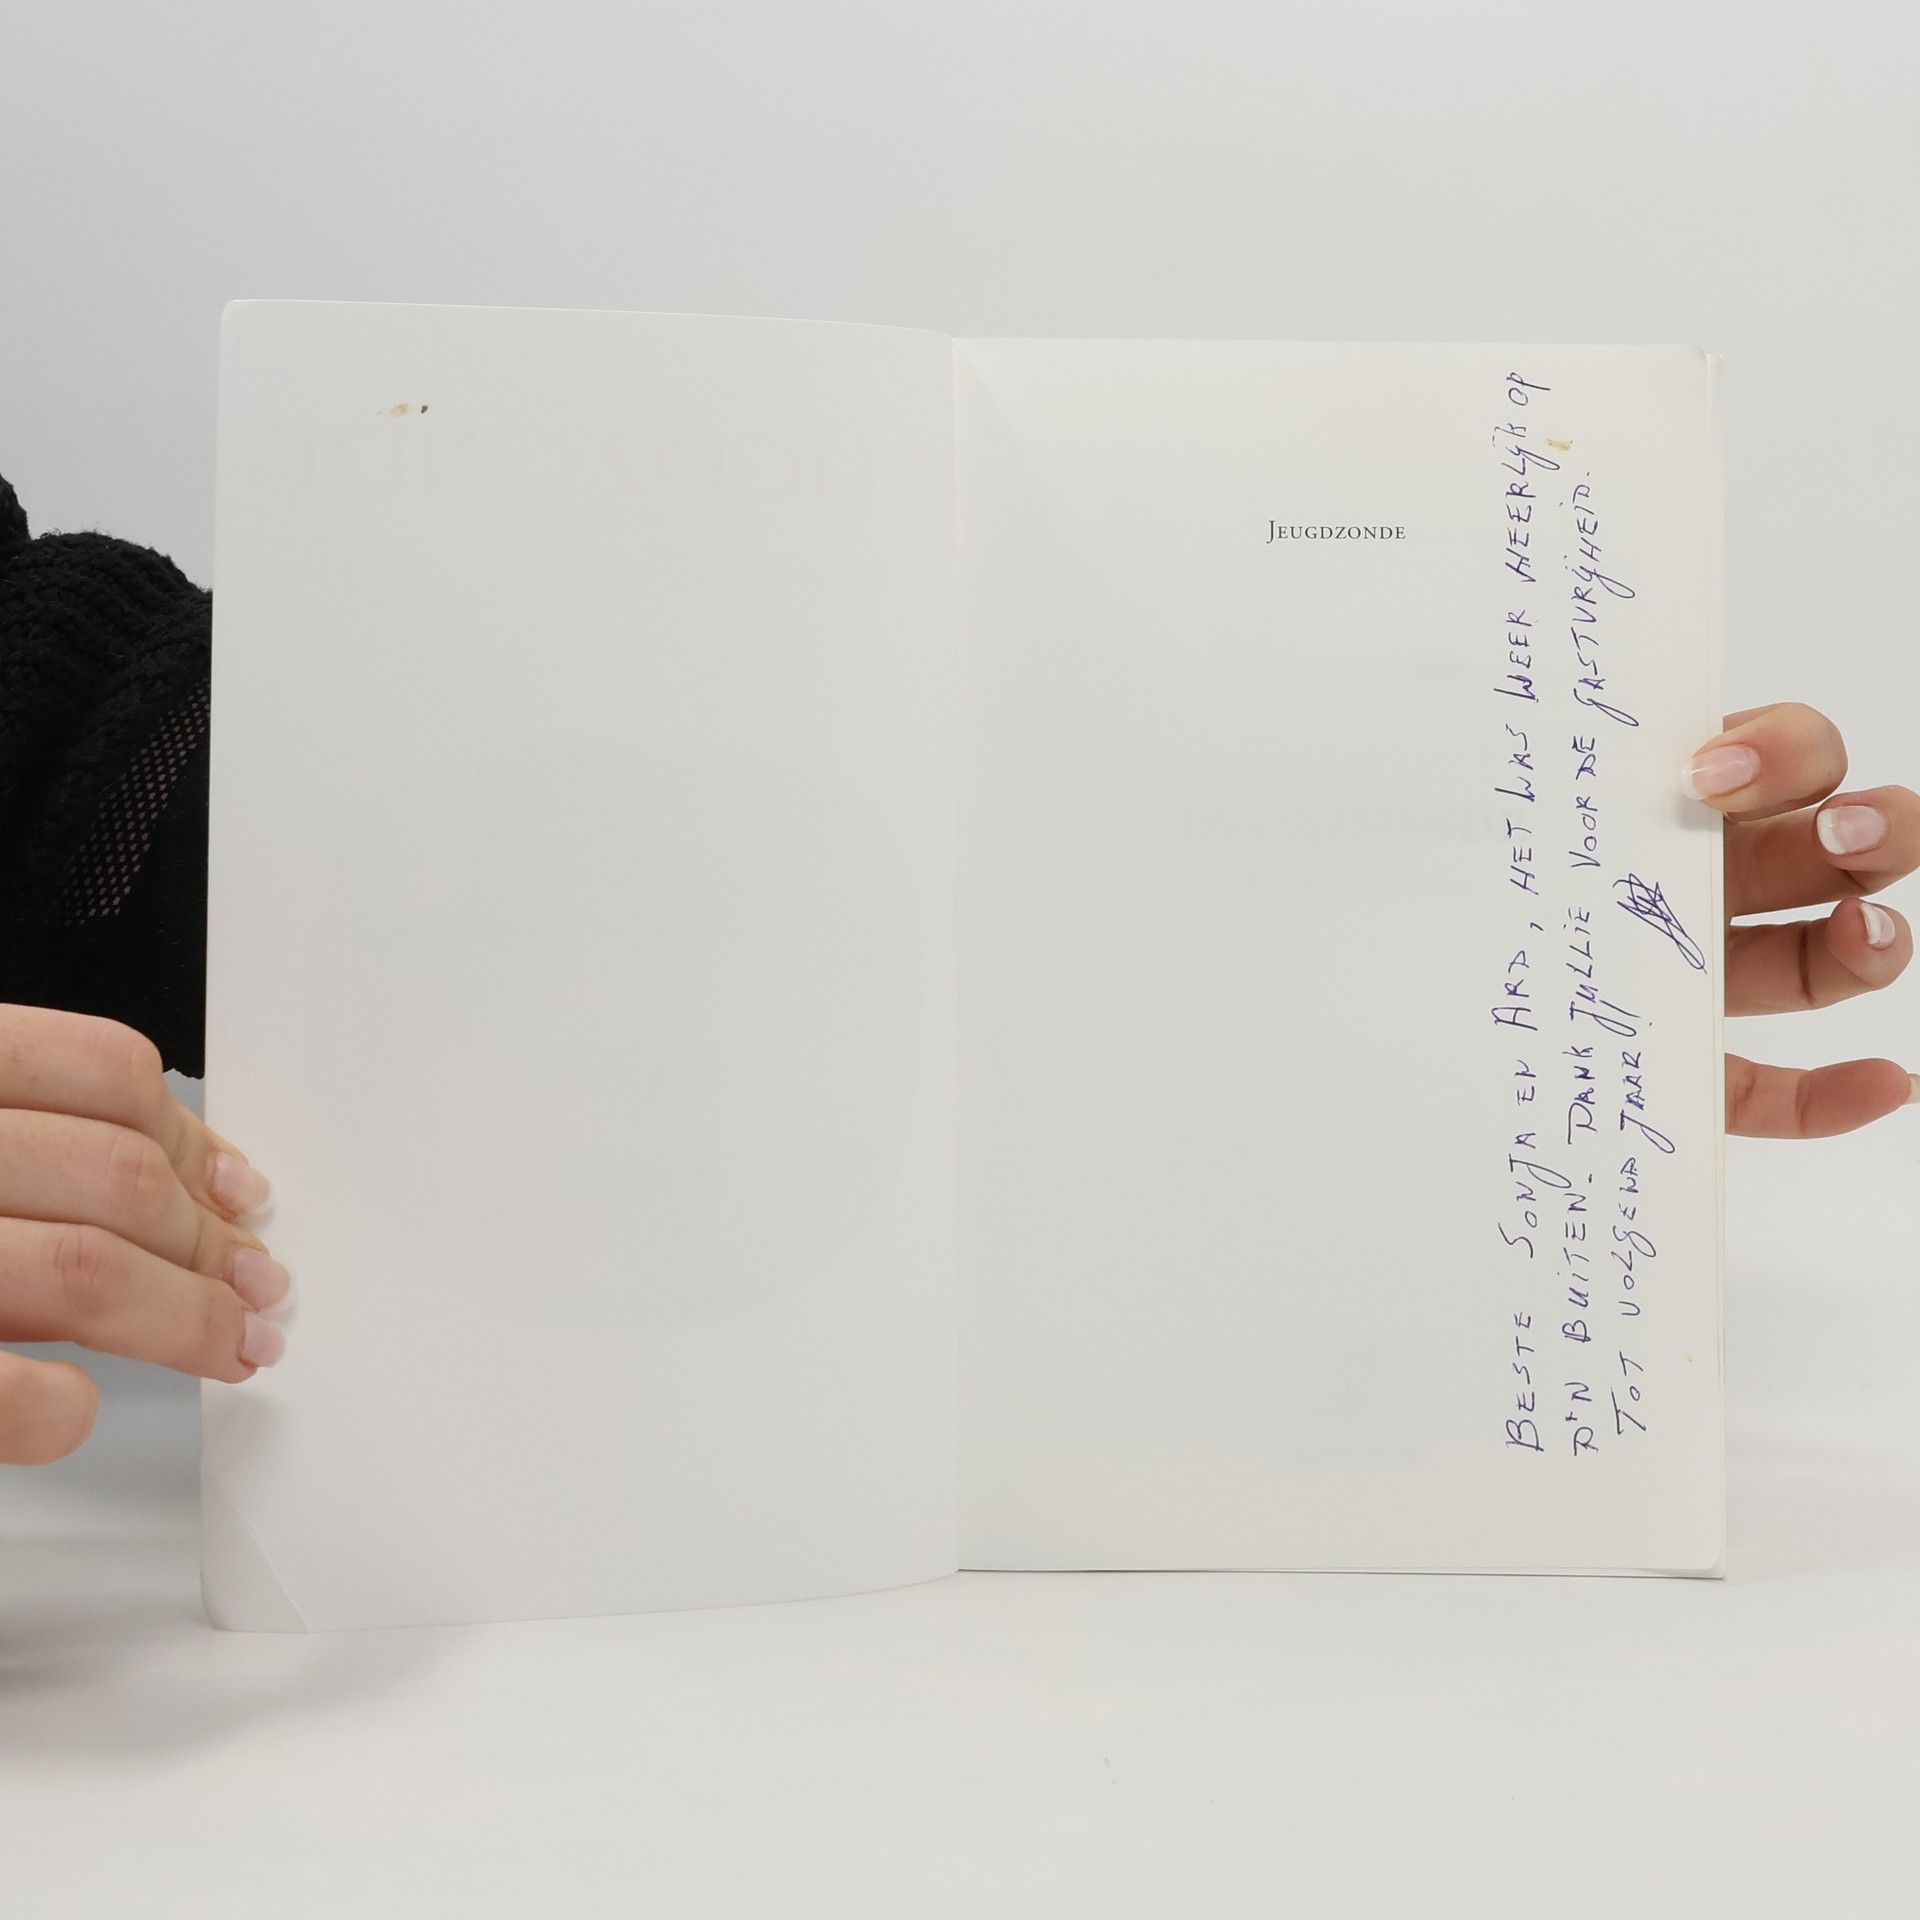 JEUGDZONDE
BESTE SONJA EN ARD, HET WAS WEER HEERLIJK OP
D'N BUITEN. DANK JULLIE VOOR DE GASTVRIJHEID.
TOT VOLGEND JAAR!